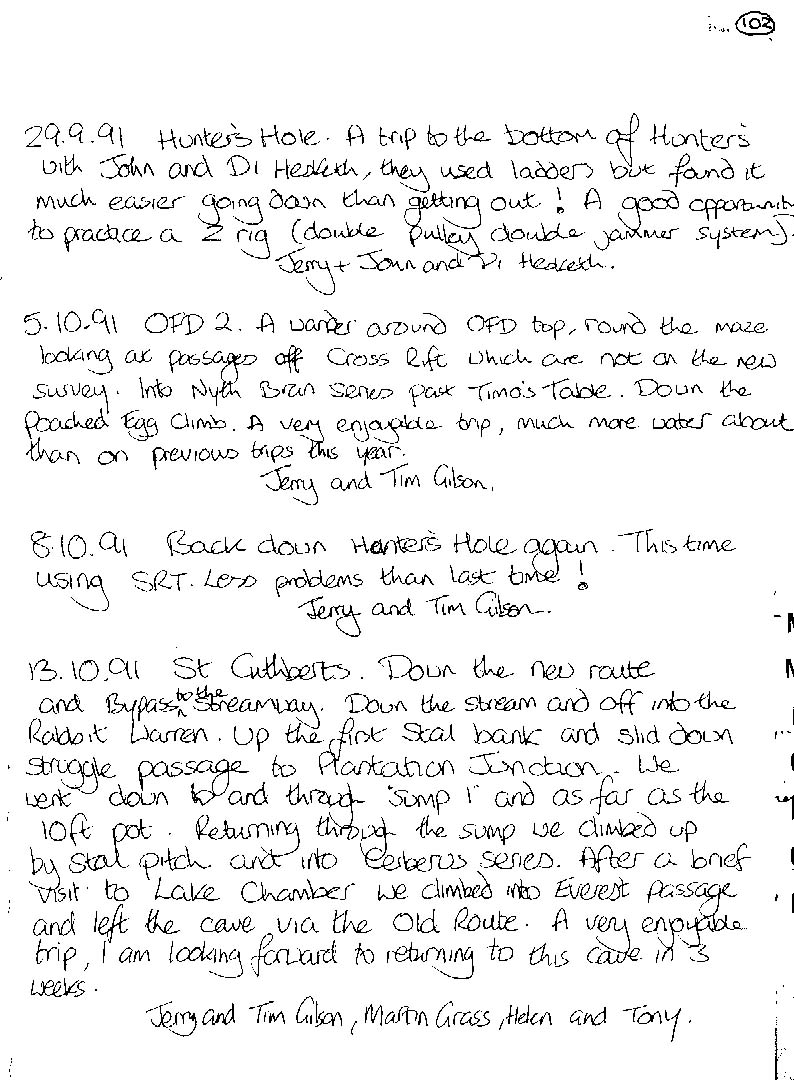 102
29.9.91 Hunter's Hole. A trip to the bottom of Hunter's
with John and Di Hesketh, they used ladders but found it
much easier going down than getting out! A good opportunity
to practice a Z rig (double pulley double jammer system).
Jerry + John and Di Hesketh.
5.10.91 OFD 2. A wander around OFD top, round the maze
looking at passages off Cross Rift which are not on the new
survey. Into Nyth Bran series past Timo's Table. Down the
Poached Egg Climb. A very enjoyable trip, much more water about
than on previous trips this year.
Jerry and Tim Gilson.
8.10.91 Back down Hunter's Hole again. This time
using SRT. Less problems than last time!
Jerry and Tim Gilson.
13.10.91 St Cuthberts. Down the new route
and Bypass to the Streamway. Down the stream and off into the
Rabbit Warren. Up the first Stal bank and slid down
Struggle passage to Plantation Junction. We
went down to and through 'sump 1' and as far as the
10ft pot. Returning through the sump we climbed up
by Stal pitch and into Cerberus series. After a brief
visit to Lake Chamber we climbed into Everest Passage
and left the cave via the Old Route. A very enjoyable
trip, I am looking forward to returning to this cave in 3
weeks.
Jerry and Tim Gilson, Martin Grass, Helen and Tony.